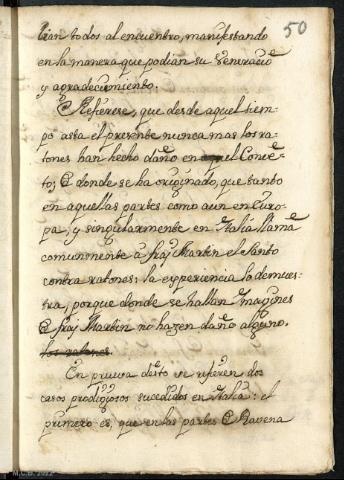 50
lian todos al encuentro, manifestando
en la manera que podian su veneracio͂
y agradecimiento.
Refierese, que desde aquel tiem-
po asta el presente nunca mas los ra-
tones han hecho daño en quel Conve͂-
to; de donde se ha originado, que tanto
en aquellas partes como aun en Euro-
pa, y singularmente en Italia, llama͂
comunmente â fray Martin el Santo
contra ratones: la experiencia lo demues-
tra, porque donde se hallan Imagines
de fray Martin no hazen daño alguno.
los ratones.
En prueva desto se refieren dos
casos prodigiosos sucedidos en Italia: el
primero es, que en las partes de Ravena